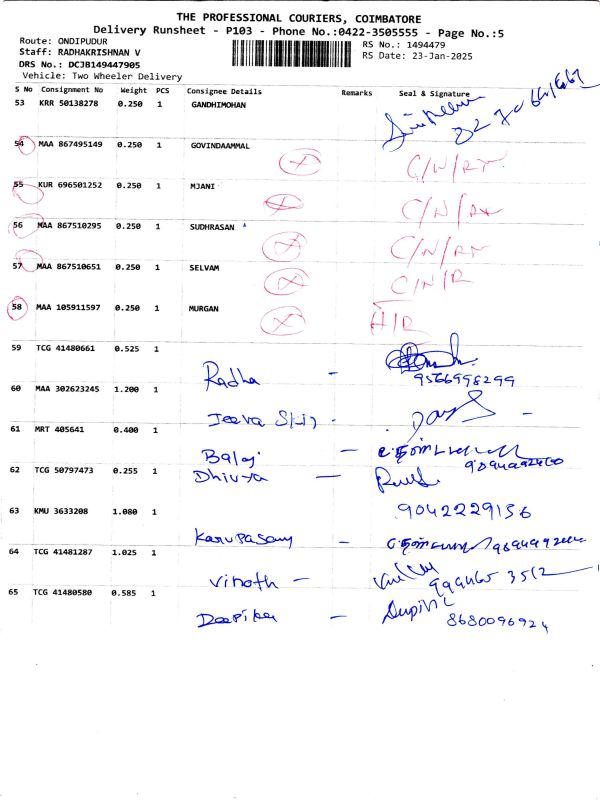 THE PROFESSIONAL COURIERS, COIMBATORE
Delivery Runsheet - P103 - Phone No.:0422-3505555 - Page No.:5
Route: ONDIPUDUR
RS No.: 1494479
Staff: RADHAKRISHNAN V
RS Date: 23-Jan-2025
DRS No.: DCJB149447905
Vehicle: Two Wheeler Delivery
S No Consignment No Weight PCS Consignee Details Remarks Seal & Signature
53 KRR 50138278 0.250 1 GANDHIMOHAN
54 MAA 867495149 0.250 1 GOVINDAAMMAL
C/N/R
55 KUR 696501252 0.250 1 MJANI
C/N/R
56 MAA 867510295 0.250 1 SUDHRASAN
C/N/R
57 MAA 867510651 0.250 1 SELVAM
C/N/R
58 MAA 105911597 0.250 1 MURGAN
A/R
59 TCG 41480661 0.525 1
Radha - 9566998299
60 MAA 302623245 1.200 1
Jeeva
61 MRT 405641 0.400 1
Balaji -
62 TCG 50797473 0.255 1
Dhivya -
63 KMU 3633208 1.080 1
9042229156
Karupasamy -
64 TCG 41481287 1.025 1
Vinoth -
65 TCG 41480580 0.585 1
Deepika - 8680096924